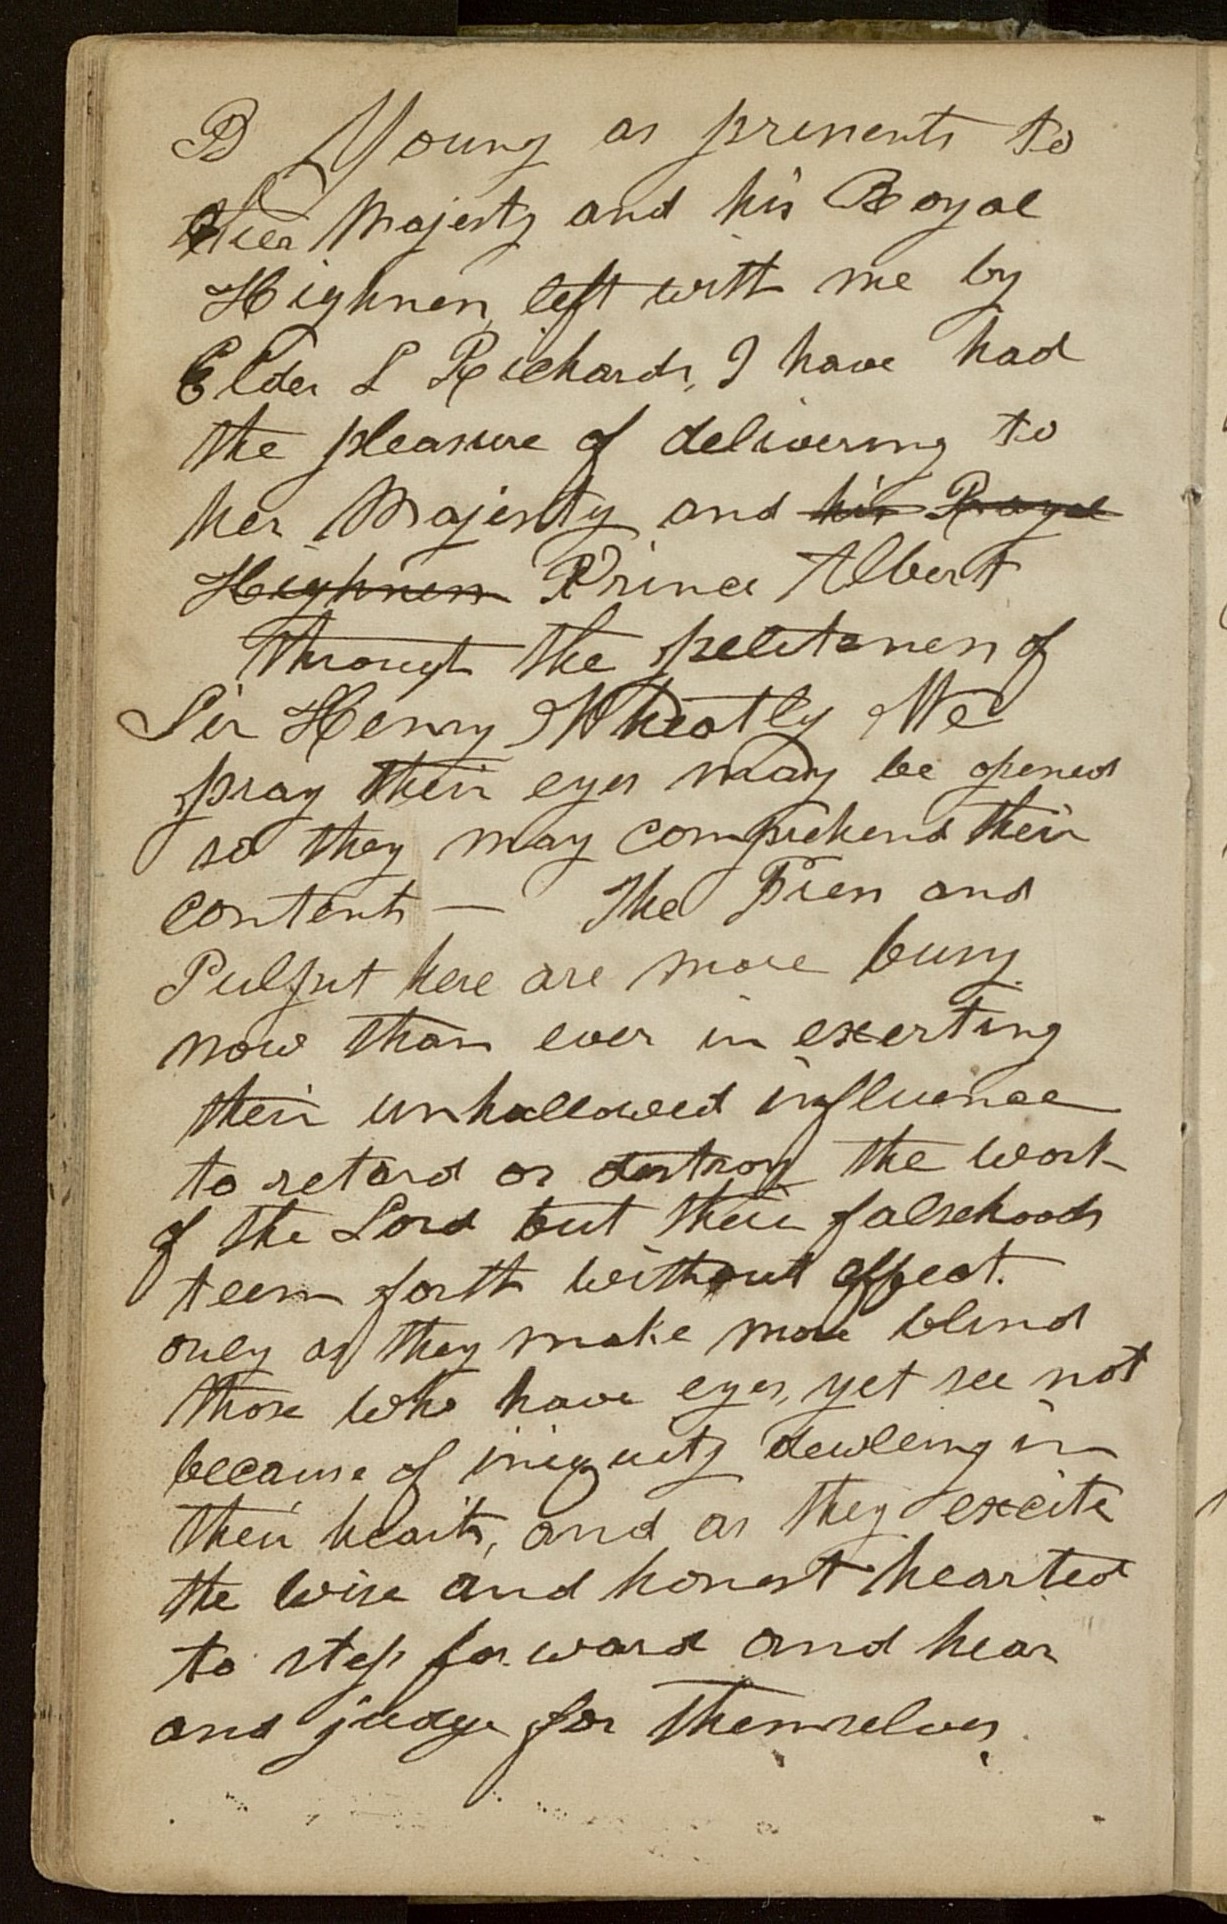 B Young as presents to
her Majesty and his Royal
Highness, left with me by
Elder L Richards, I have had
the pleasure of delivering to
her Majesty and his Royal
Highness Prince Albert
through the politeness of
Sir Henry Wheatly We
pray their eyes may be opened
so they may comprehend their
contents — The Press and
Pulput here are more busy
now than ever in exerting
their unhallowed influence
to retard or destroy the work
of the Lord but their falsehoods
teem forth without effect.
only as they make more blind
those who have eyes, yet see not
because of iniquity dewleing in
their hearts, and as they excite
the wise and honest hearted
to step forward and hear
and judge for themselves.